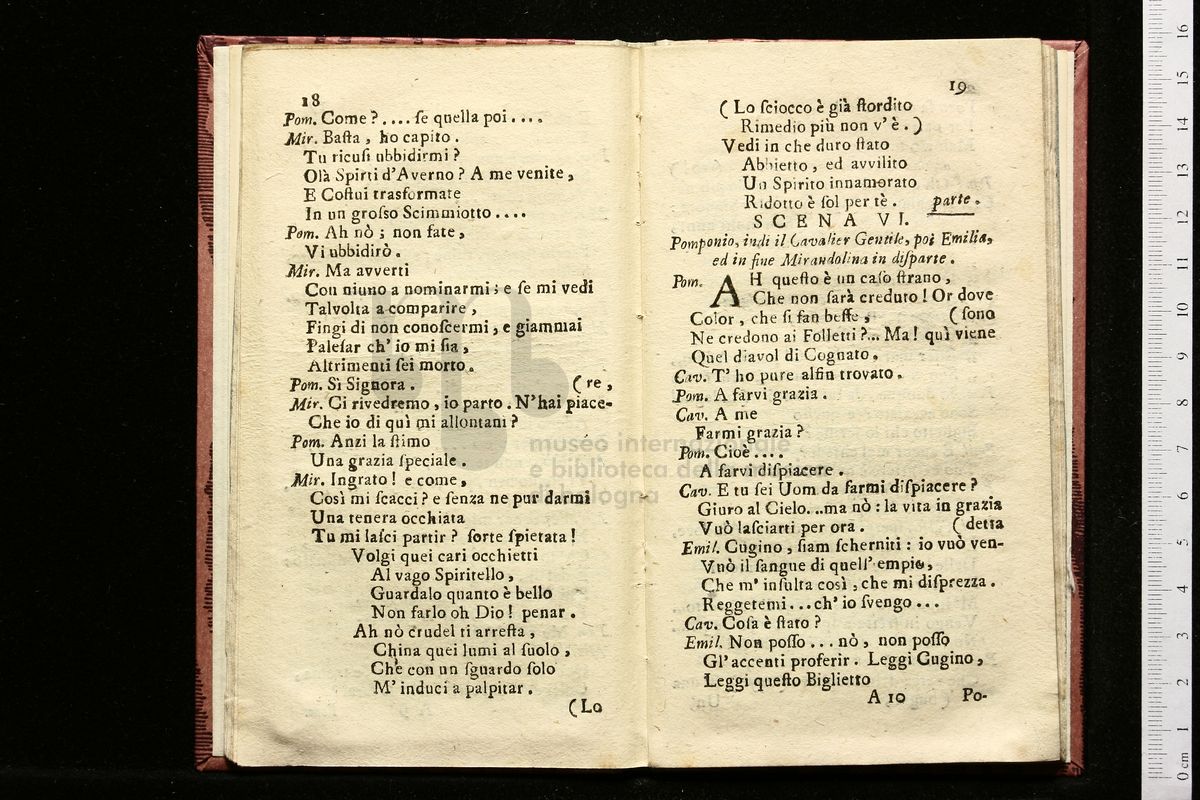 18
Pom. Come ? .... ſe quella poi ....
Mir. Baſta , ho capito .
Tu ricuſi ubbidirmi ?
Olà Spirti d'Averno ? A me venite ,
E Coſtui trasformate
In un groſſo Scimmiotto ....
Pom. Ah nò ; non fate ,
Vi ubbidirò .
Mir. Ma avverti
Con niuno a nominarmi ; e ſe mi vedi
Talvolta a comparire ,
Fingi di non conoſcermi , e giammai
Paleſar ch' io mi ſia ,
Altrimenti ſei morto .
Pom. Sì Signora . ( re ,
Mir. Ci rivedremo , io parto . N'hai piace-
Che io di quì mi allontani ?
Pom. Anzi la ſtimo
Una grazia ſpeciale .
Mir. Ingrato ! e come ,
Così mi ſcacci ? e ſenza ne pur darmi
Una tenera occhiata
Tu mi laſci partir ? ſorte ſpietata !
Volgi quei cari occhietti
Al vago Spiritello ,
Guardalo quanto è bello
Non farlo oh Dio ! penar .
Ah nò crudel ti arreſta ,
China quei lumi al ſuolo ,
Che con un ſguardo ſolo
M' induci a palpitar .
( Lo
19
( Lo ſciocco è già ſtordito
Rimedio più non v' è . )
Vedi in che duro ſtato
Abbietto , ed avvilito
Un Spirito innamorato
Ridotto è ſol per tè . parte .
SCENA VI.
Pomponio, indi il Cavalier Gentile, poi Emilia,
ed in fine Mirandolina in diſparte .
Pom. AH queſto è un caſo ſtrano ,
Che non ſarà creduto ! Or dove
Color , che ſi fan beffe , ( ſono
Ne credono ai Folletti ?... Ma ! quì viene
Quel diavol di Cognato .
Cav. T' ho pure alfin trovato .
Pom. A farvi grazia .
Cav. A me
Farmi grazia ?
Pom. Cioè ....
A farvi diſpiacere .
Cav. E tu ſei Uom da farmi diſpiacere ?
Giuro al Cielo...ma nò : la vita in grazia
Vuò laſciarti per ora . ( detta
Emil. Cugino , ſiam ſcherniti : io vuò ven-
Vuò il ſangue di quell' empio,
Che m' inſulta così , che mi diſprezza .
Reggetemi ... ch' io ſvengo ...
Cav. Coſa è ſtato ?
Emil. Non poſſo ... nò , non poſſo
Gl' accenti proferir . Leggi Cugino ,
Leggi queſto Biglietto
A 10 Po-
museo internazionale
e biblioteca della
bologna
0 cm 1 2 3 4 5 6 7 8 9 10 11 12 13 14 15 16